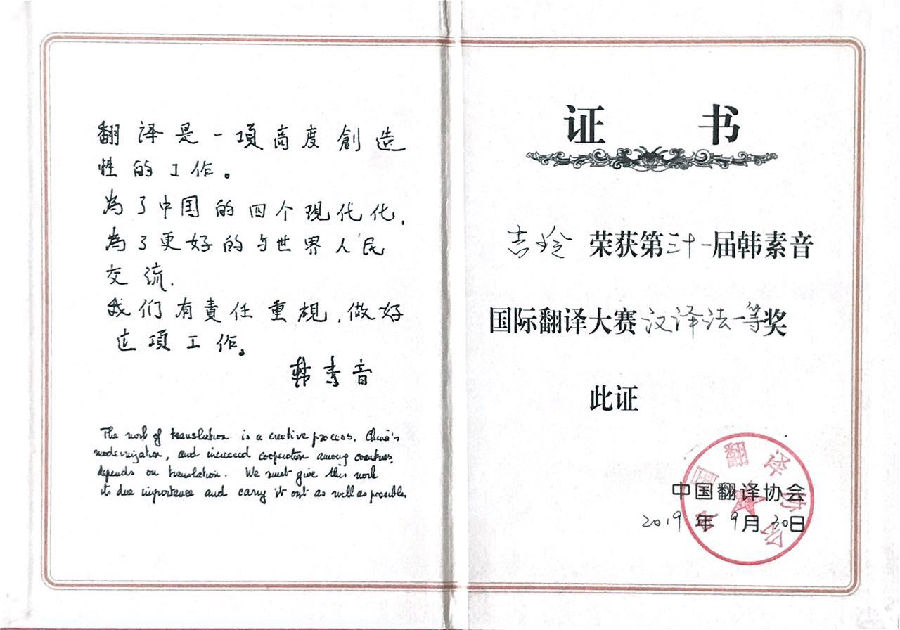 翻译是一項高度創造
性的工作。
為了中国的四个现代化,
為了更好的与世界人民
交流.
我们有責任重視,做好
这項工作。
韩素音
The work of translation is a creative process. China's
modernization, and increased cooperation among countries,
depends on translation. We must give this work
its due importance and carry it out as well as possible.
证 书
吉玲 荣获第三十一届韩素音
国际翻译大赛汉译法一等奖
此证
中国翻译协会
2019年9月20日
中国翻译协会